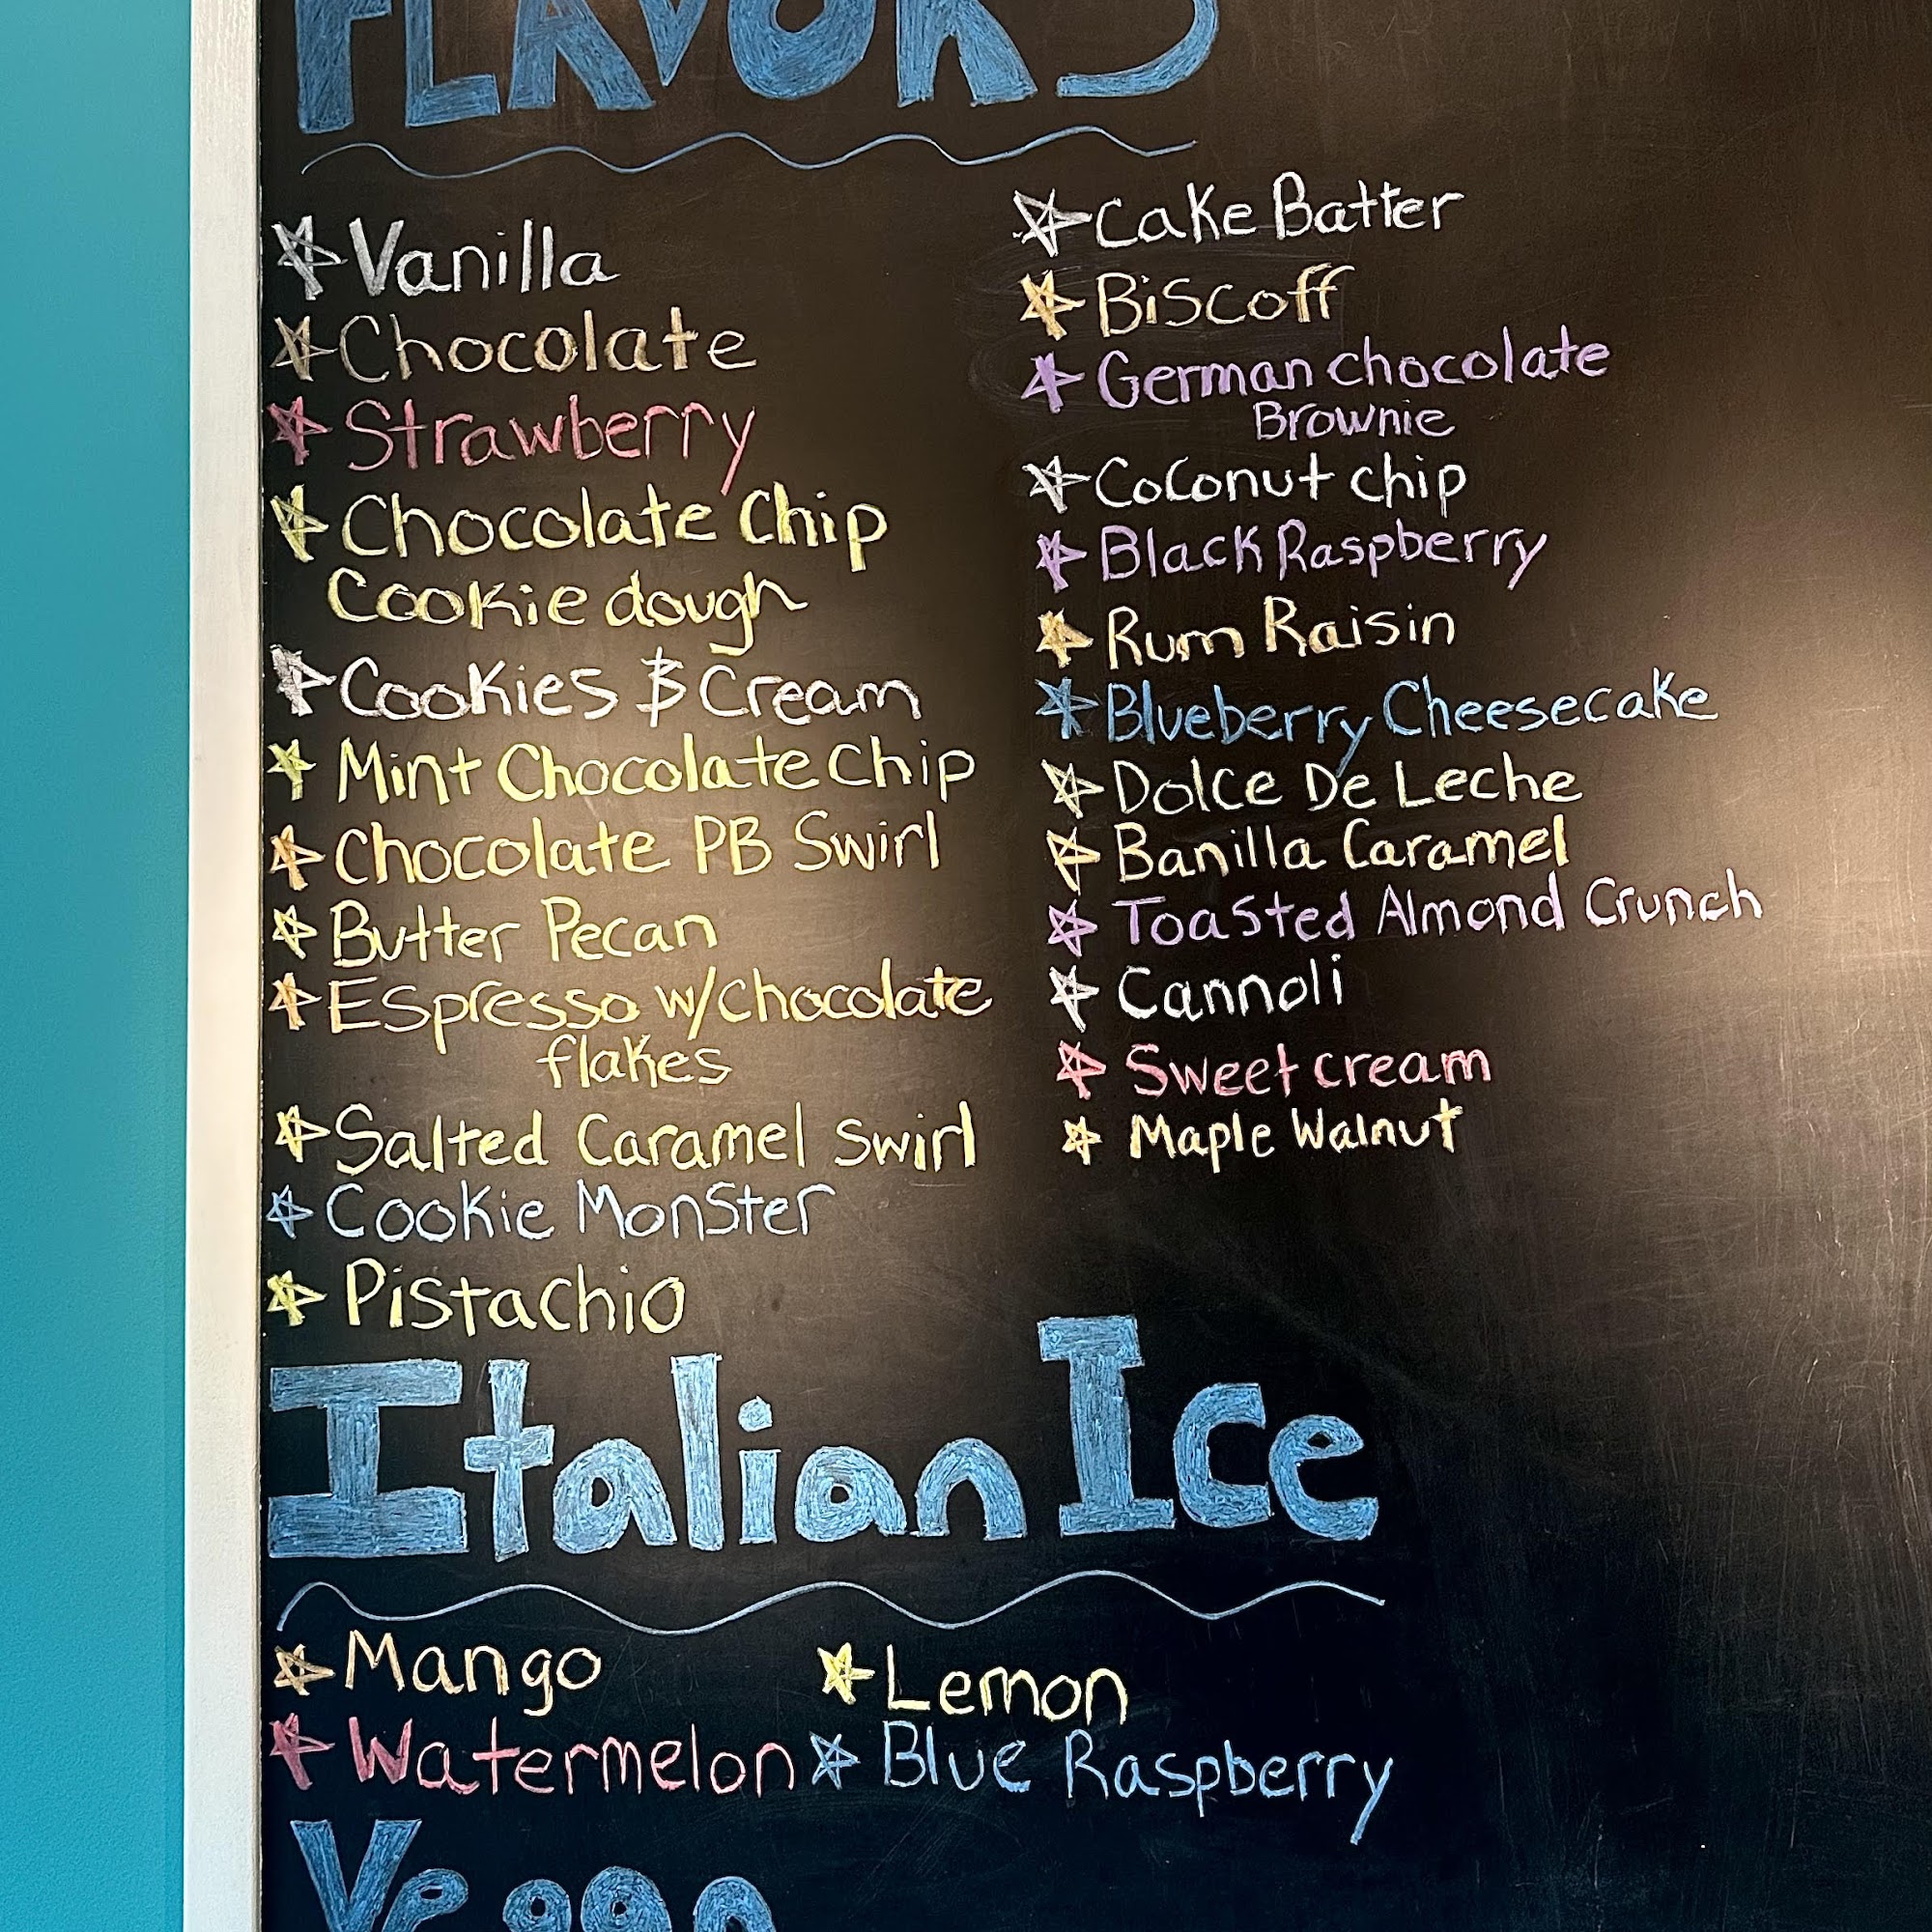 FLAVORS
Vanilla
Chocolate
Strawberry
Chocolate Chip
Cookie dough
Cookies & Cream
Mint Chocolate Chip
Chocolate PB Swirl
Butter Pecan
Espresso w/chocolate
flakes
Salted Caramel Swirl
Cookie Monster
Pistachio
Cake Batter
Biscoff
German chocolate
Brownie
Coconut chip
Black Raspberry
Rum Raisin
Blueberry Cheesecake
Dolce De Leche
Banilla Caramel
Toasted Almond Crunch
Cannoli
Sweet cream
Maple Walnut
Italian Ice
Mango
Lemon
Watermelon
Blue Raspberry
Vegan